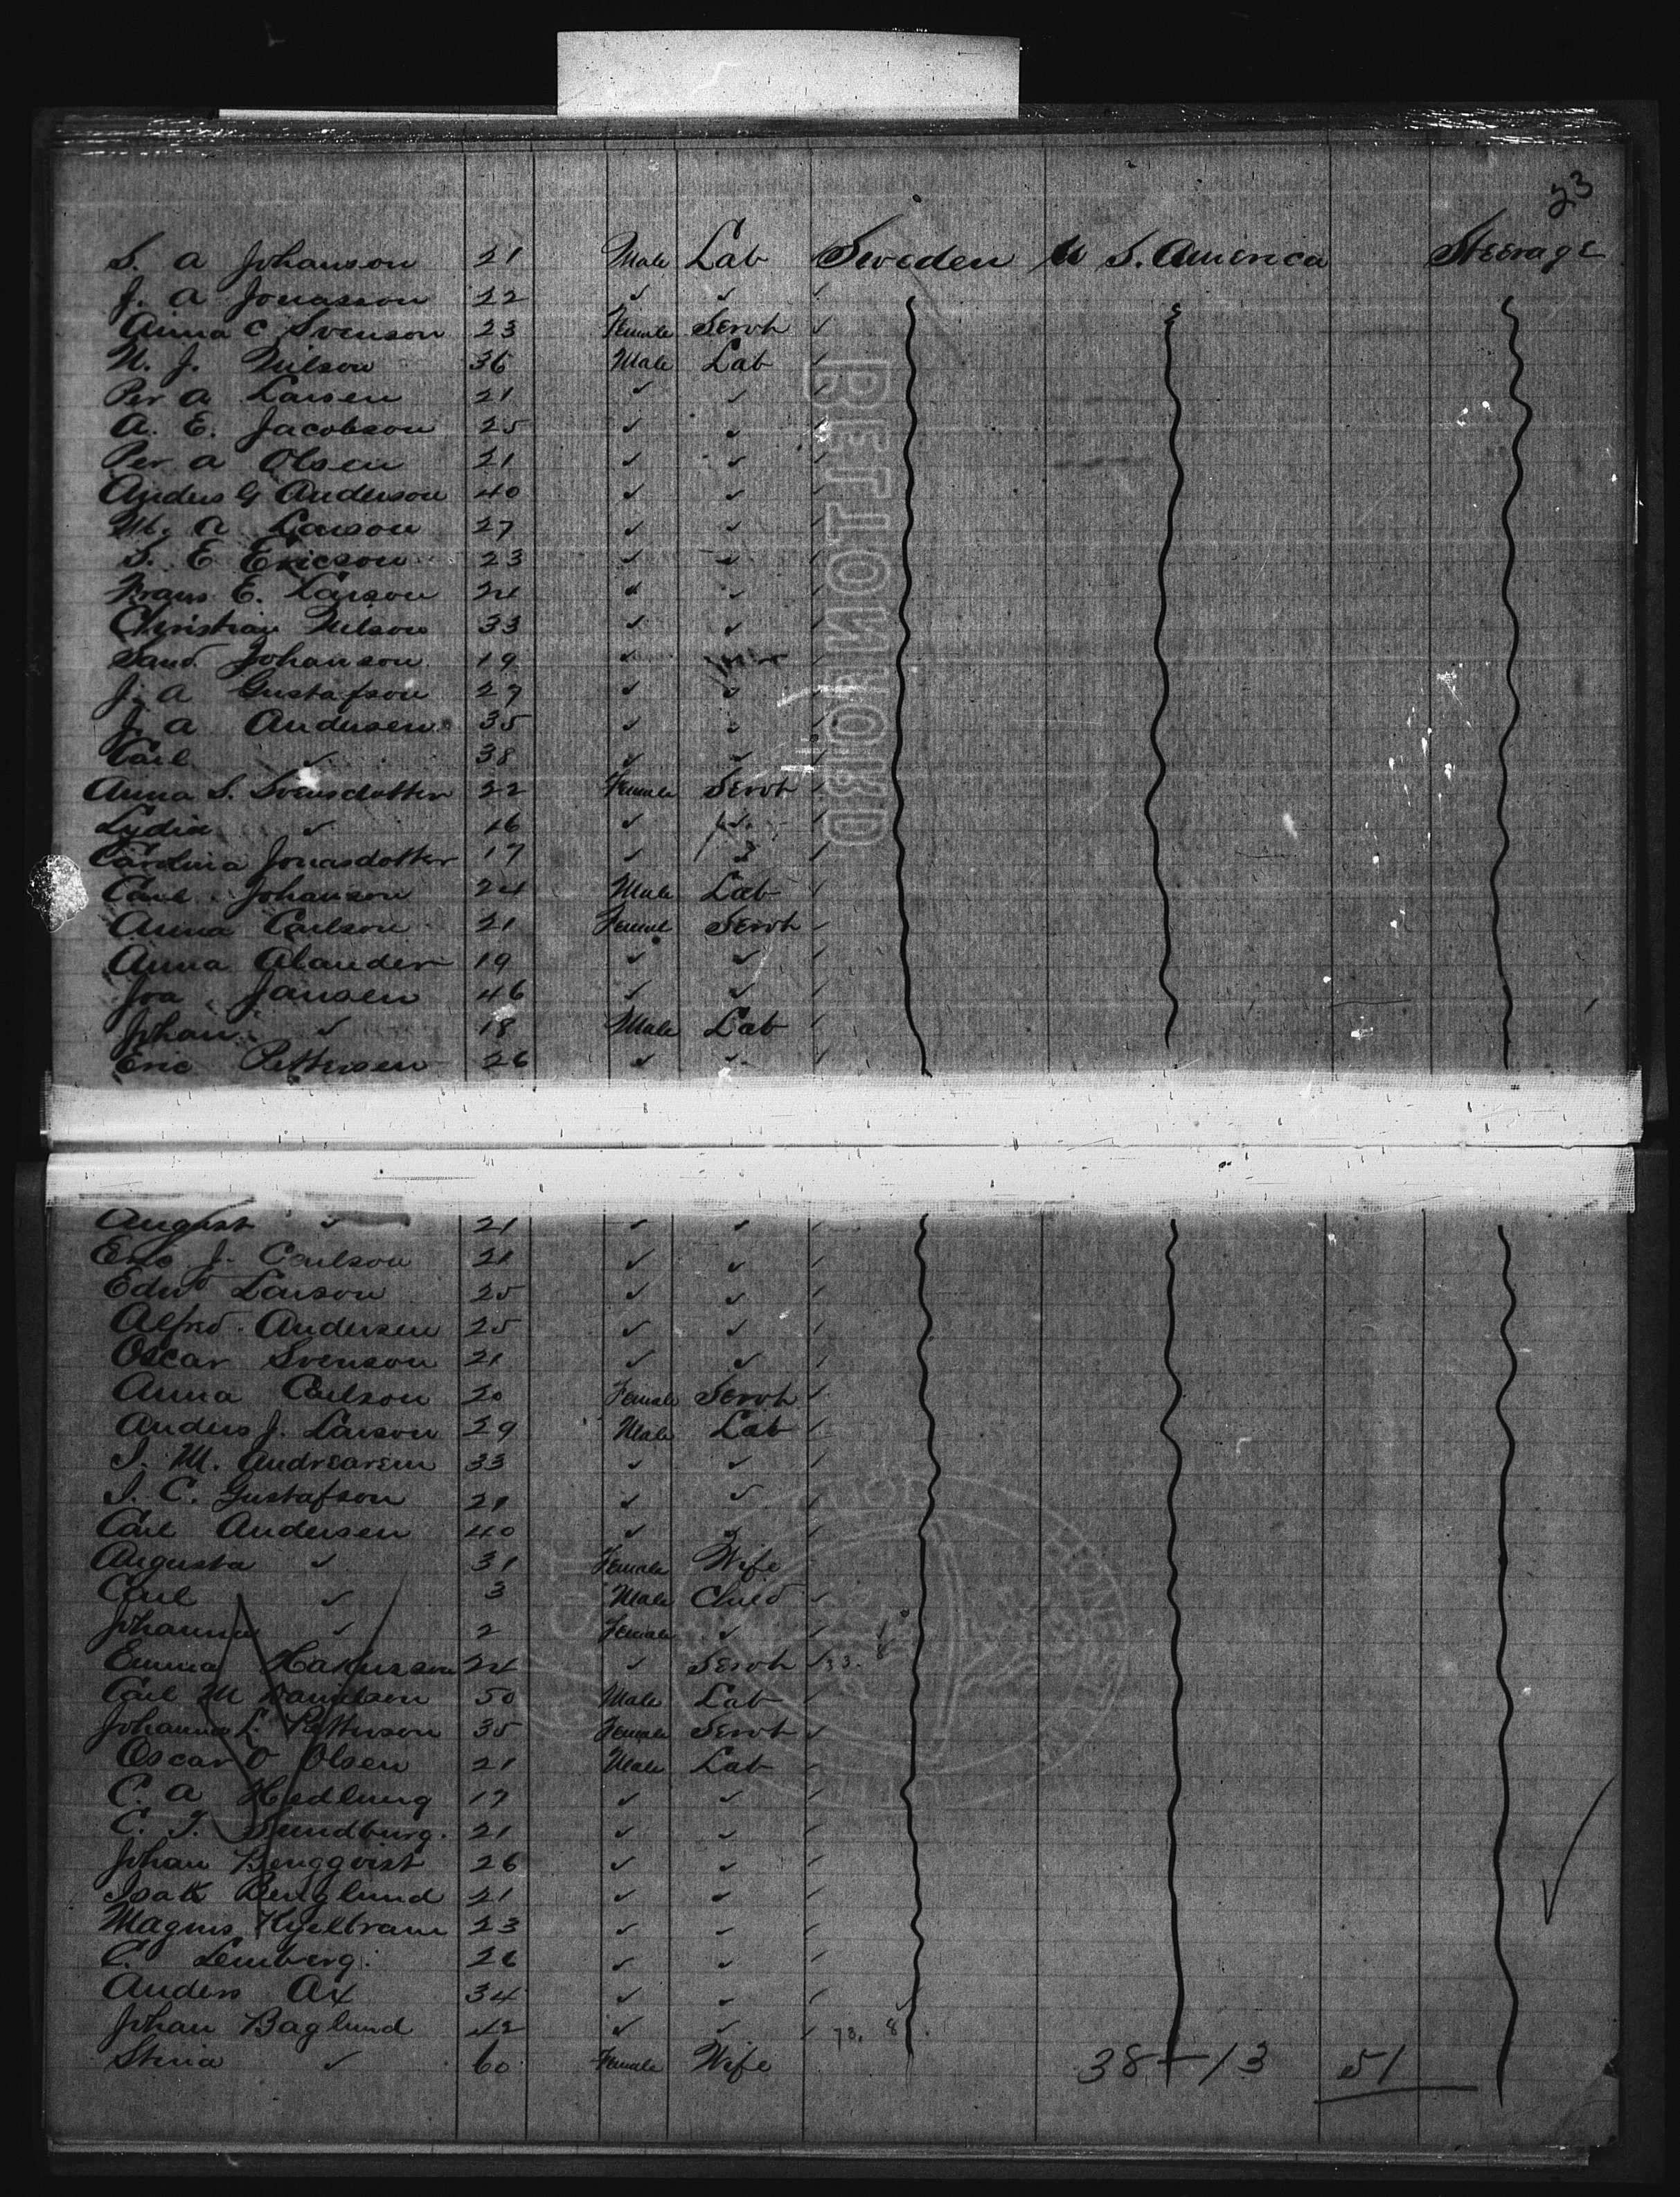 23
S. A Johanson 21 Male Lab Sweden U S. America Steerage
J. A Jonasson 22 ✓ ✓ ✓
Anna C Svenson 23 Female Servt ✓
N. J. Nilson 36 Male Lab ✓
Per A Larsen 21 ✓ ✓ ✓
A. E. Jacobson 25 ✓ ✓ ✓
Per A Olsen 21 ✓ ✓ ✓
Anders G Anderson 40 ✓ ✓ ✓
M. A Larson 27 ✓ ✓ ✓
S. E Ericson 23 ✓ ✓ ✓
Frans E. Larson 24 ✓ ✓ ✓
Christian Nilson 33 ✓ ✓ ✓
Sand. Johanson 19 ✓ ✓ ✓
J. A Gustafson 27 ✓ ✓ ✓
J. A Andersen 35 ✓ ✓ ✓
Carl ✓ 38 ✓ ✓ ✓
Anna S. Svensdotter 22 Female Servt ✓
Lydia ✓ 16 ✓ ✓ ✓
Carolina Jonasdotter 17 ✓ ✓ ✓
Carl Johanson 24 Male Lab ✓
Anna Carlson 21 Femal Servt ✓
Anna Alander 19 ✓ ✓ ✓
Jansen 46 ✓ ✓ ✓
Johan ✓ 18 Male Lab ✓
Eric Pettersen 26 ✓ ✓ ✓
August ✓ 21 ✓ ✓ ✓
J. Carlson 21 ✓ ✓ ✓
Edwd Larson 25 ✓ ✓ ✓
Alfred Andersen 25 ✓ ✓ ✓
Oscar Svenson 21 ✓ ✓ ✓
Anna Carlson 20 Female Servt ✓
Anders J. Larson 29 Male Lab ✓
S. M. Andreasen 33 ✓ ✓ ✓
S. C. Gustafson 21 ✓ ✓ ✓
Carl Andersen 40 ✓ ✓ ✓
Augusta ✓ 31 Female Wife
Carl ✓ 3 Male Child ✓
Johanna ✓ 2 Female ✓ ✓
Emma Hakinson 24 ✓ Servt ✓ 33. 8
Carl M Danielsen 50 Male Lab ✓
Johanna L. Petterson 35 Female Servt ✓
Oscar O Olsen 21 Male Lab ✓
C. A Hedlung 17 ✓ ✓ ✓
C. J. Sundburg. 21 ✓ ✓ ✓
Johan Bengqvist 26 ✓ ✓ ✓
Isak Berglund 21 ✓ ✓ ✓
Magnus Kjellram 23 ✓ ✓ ✓
C. Lemberg. 26 ✓ ✓ ✓
Anders Ax 34 ✓ ✓ ✓
Johan Baglund 42 ✓ ✓ ✓ 73. 8
Stina ✓ 60 Female Wife 38 + 13 51